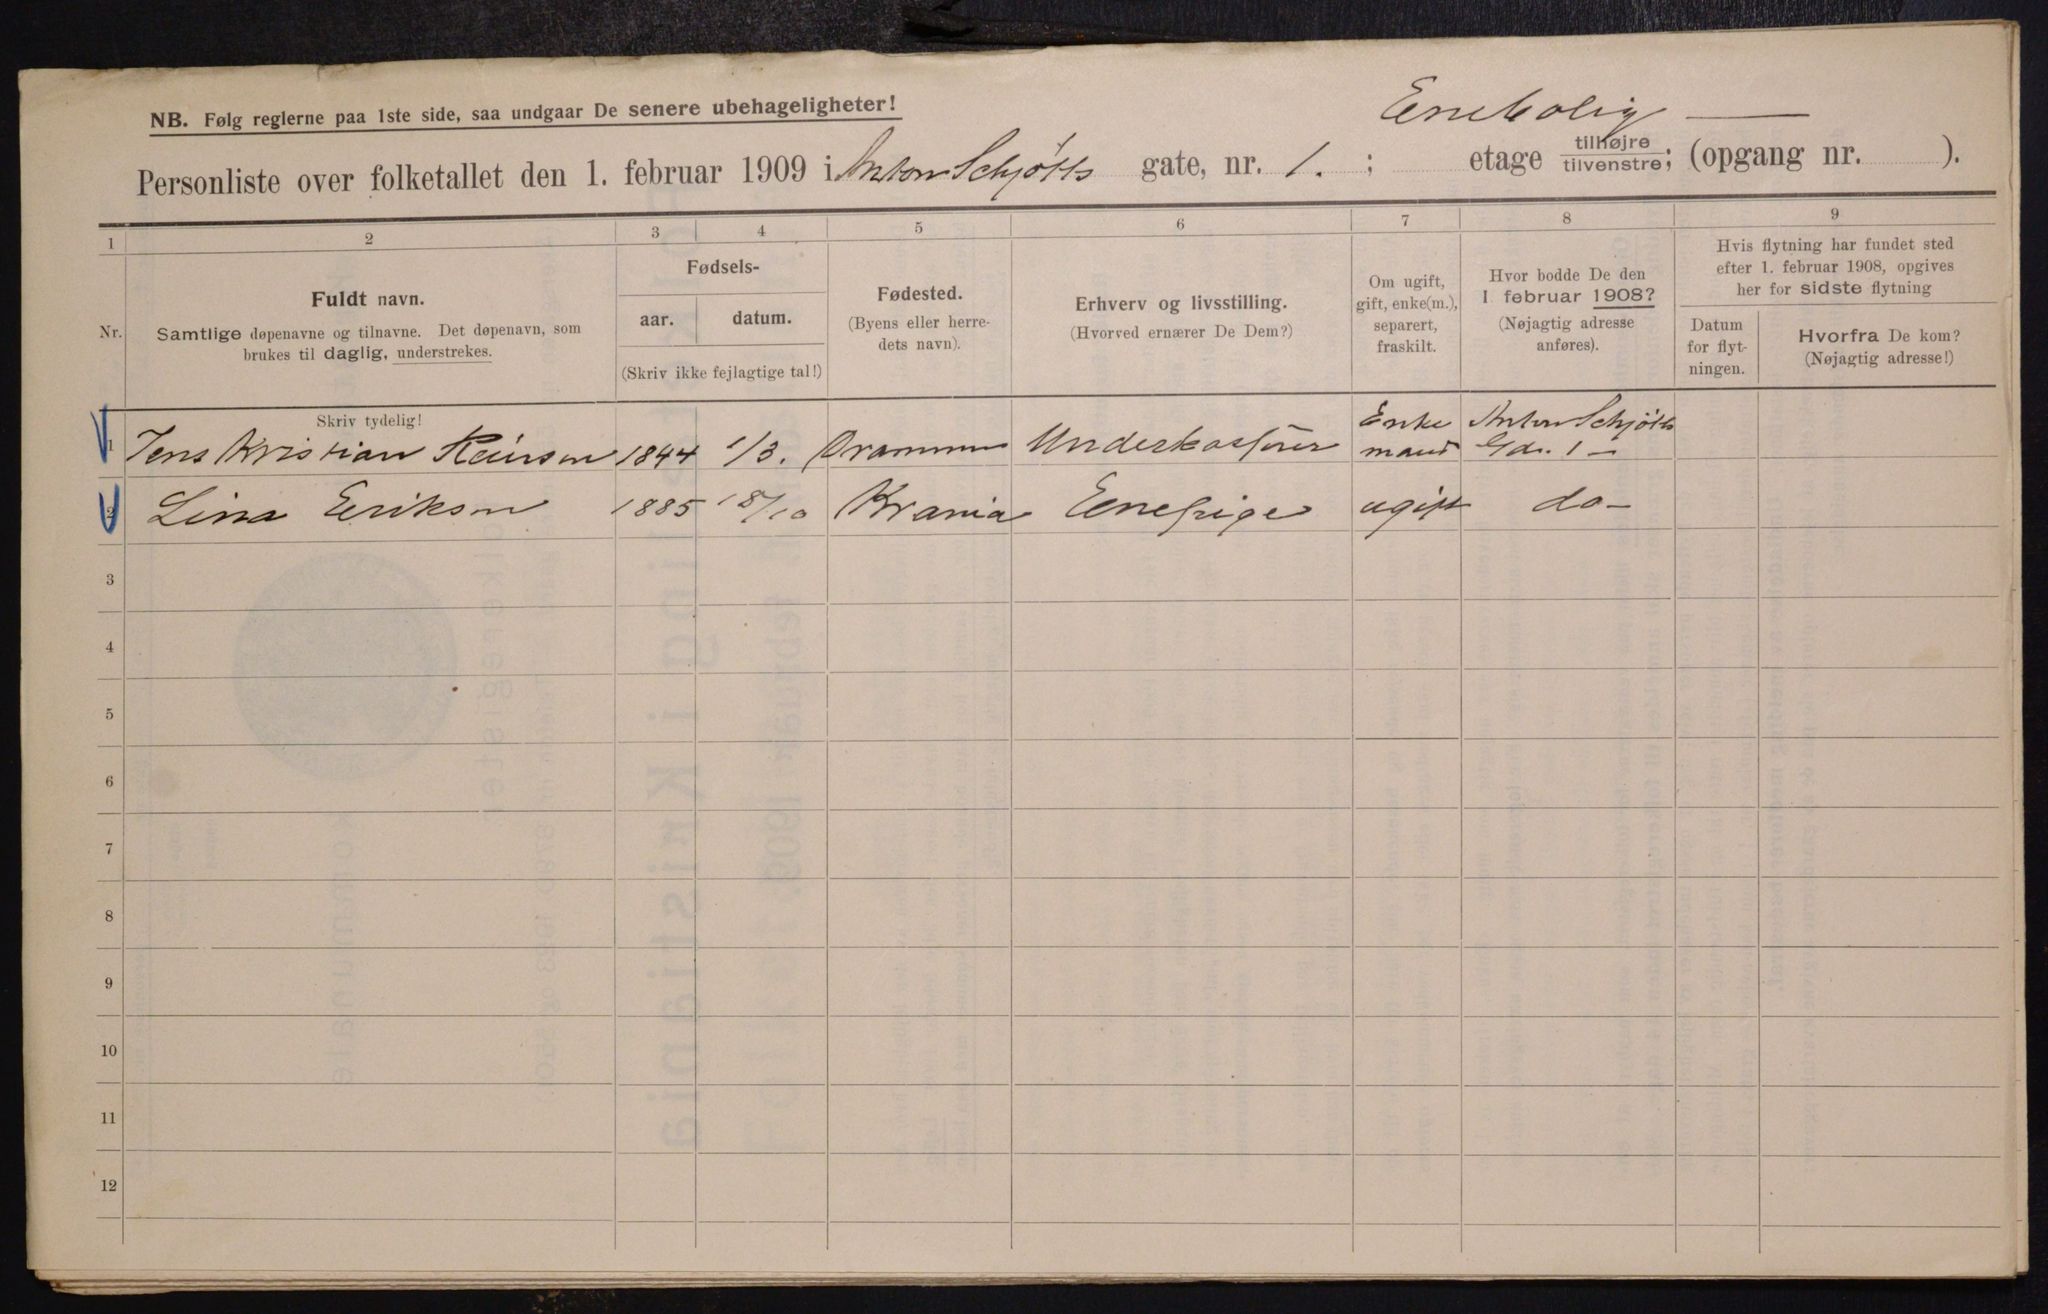 Enebolig —
NB. Følg reglerne paa 1ste side, saa undgaar De senere ubehageligheter!
Personliste over folketallet den 1. februar 1909 i Anton Schjøtts gate, nr. 1. ; etage tilhøjre/tilvenstre; (opgang nr. ).
1 2 3 4 5 6 7 8 9
Nr.
Fuldt navn.
Samtlige døpenavne og tilnavne. Det døpenavn, som
brukes til daglig, understrekes.
Fødsels-
aar. datum.
(Skriv ikke fejlagtige tal!)
Fødested.
(Byens eller herre-
dets navn).
Erhverv og livsstilling.
(Hvorved ernærer De Dem?)
Om ugift,
gift, enke(m.),
separert,
fraskilt.
Hvor bodde De den
1. februar 1908?
(Nøjagtig adresse
anføres).
Hvis flytning har fundet sted
efter 1. februar 1908, opgives
her for sidste flytning
Datum
for flyt-
ningen.
Hvorfra De kom?
(Nøjagtig adresse!)
Skriv tydelig!
1 Jens Kristian 1844 1/3. Drammen Underkasserer Enke mand Anton Schjøtts Gde. 1 —
2 Lina Erikson 1885 18/10 Krania Enepige ugift do —
3
4
5
6
7
8
9
10
11
12